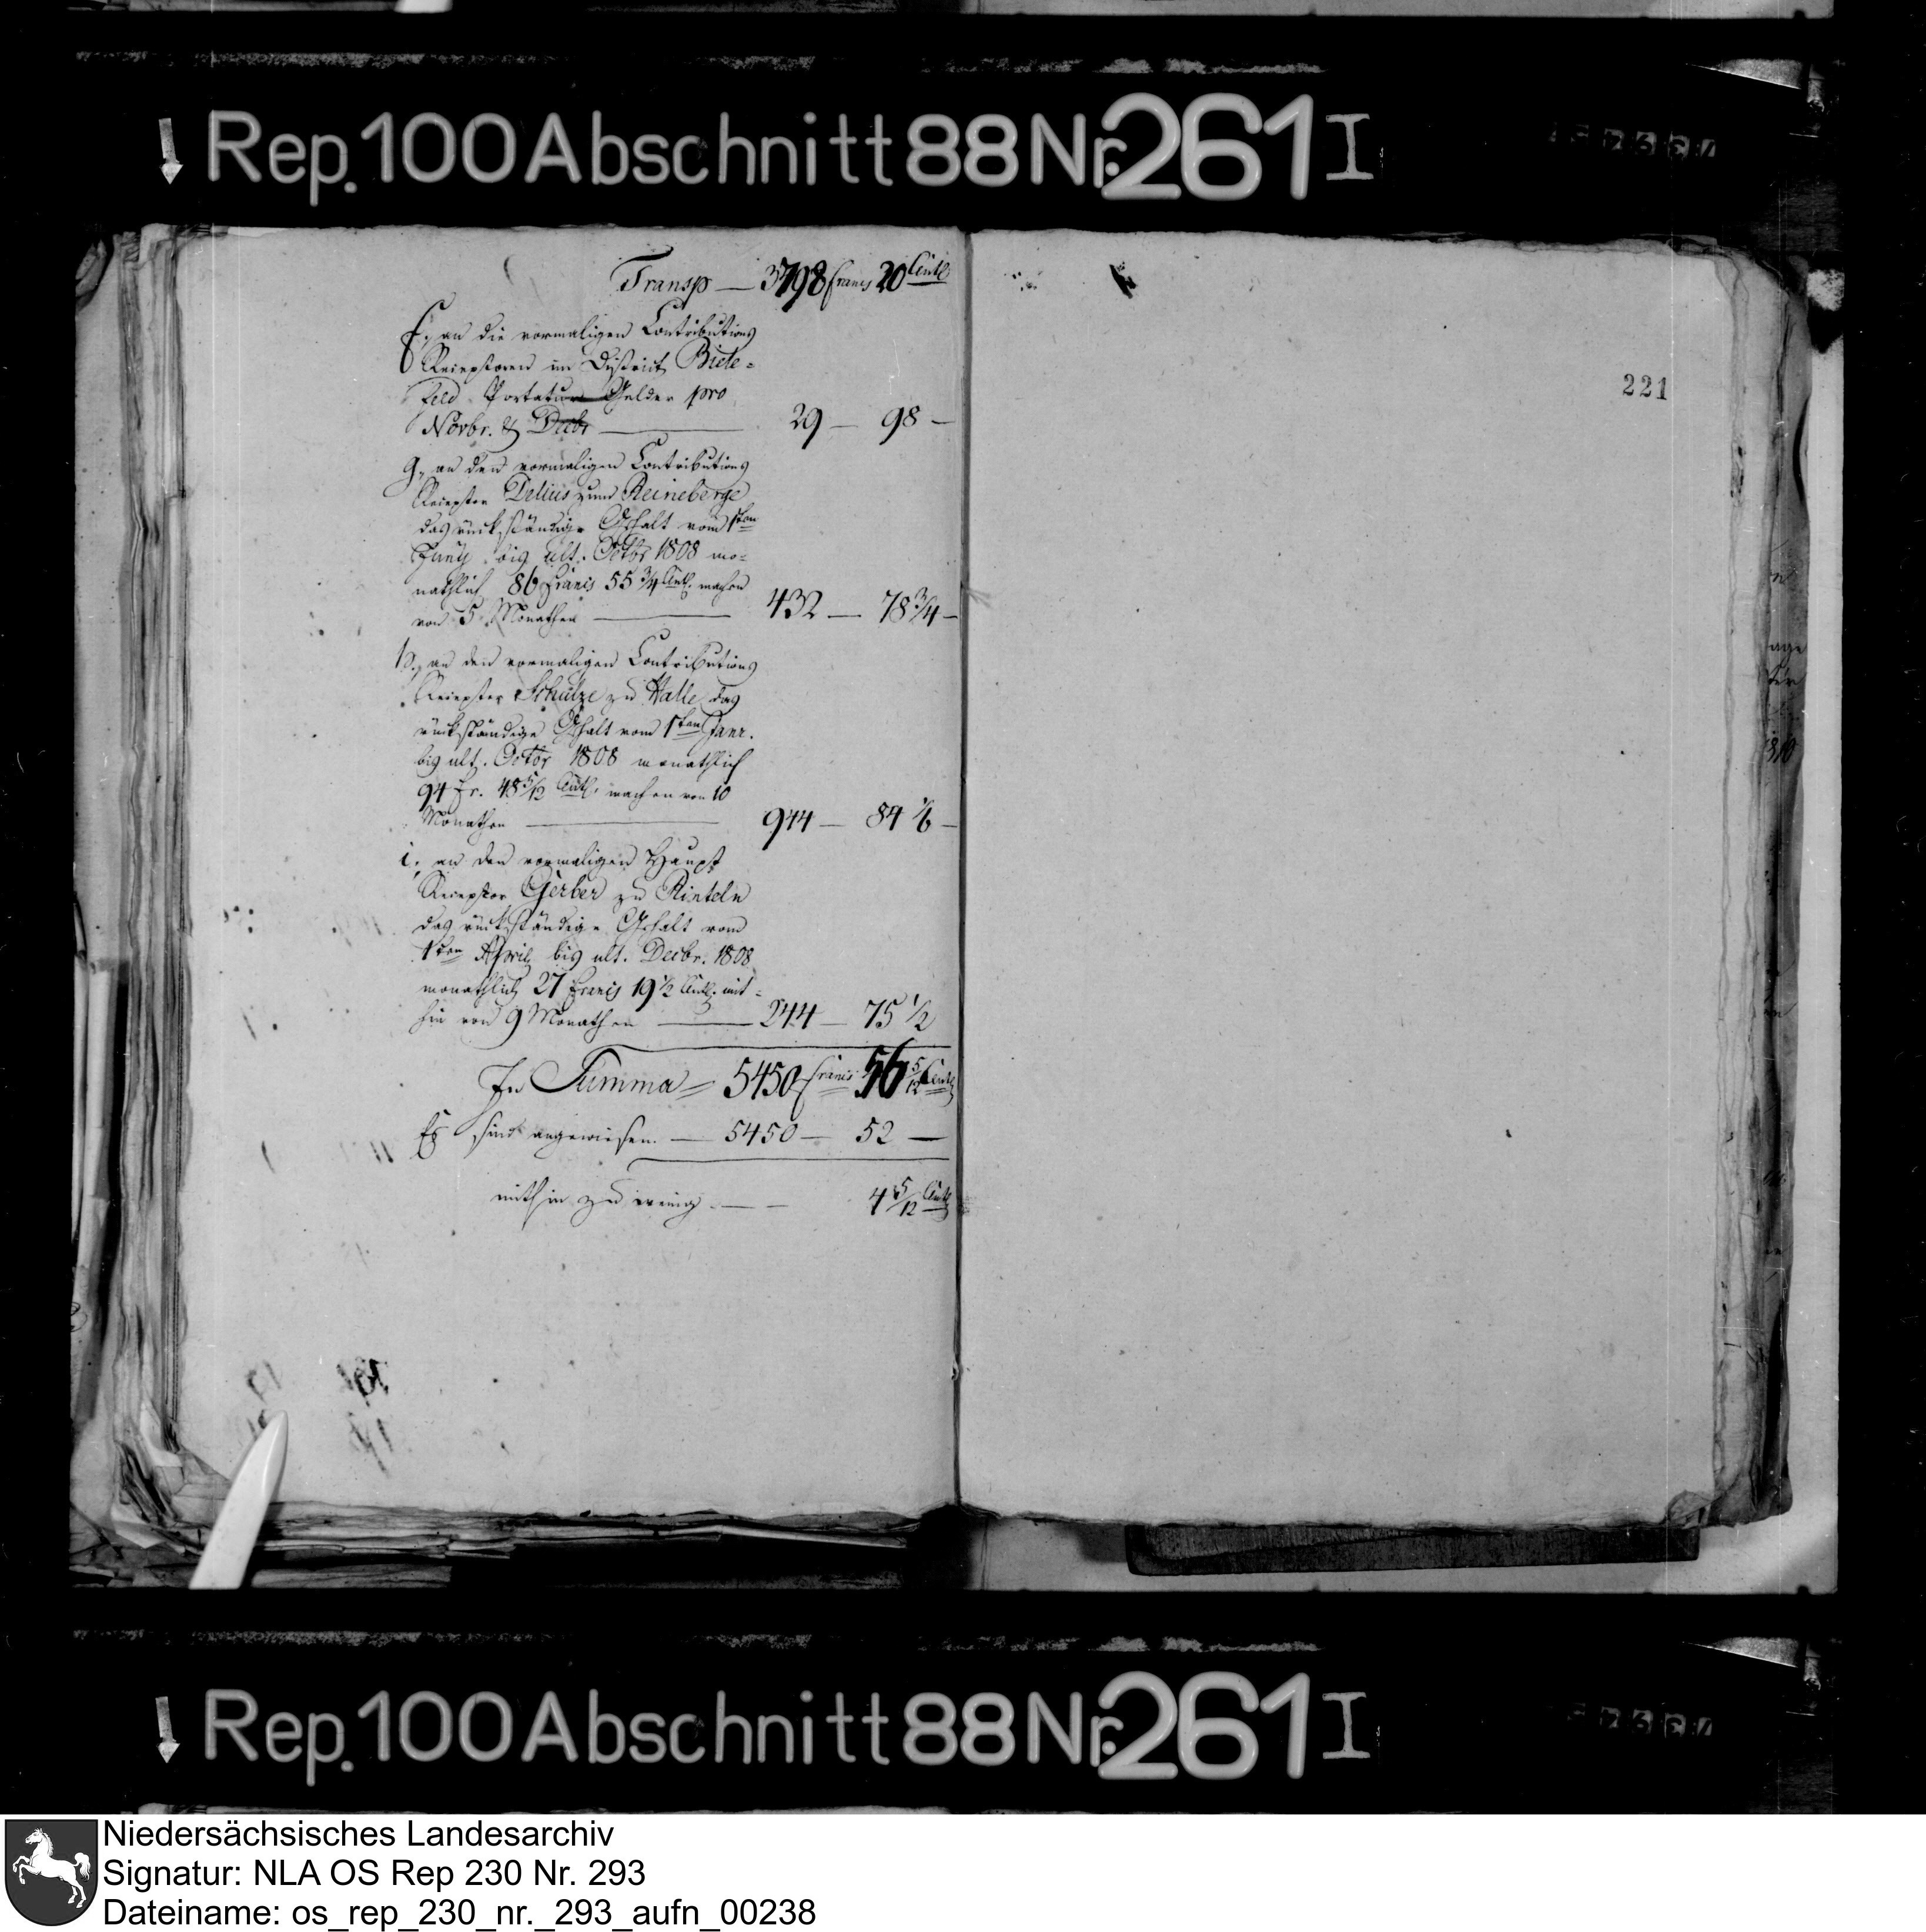 Rep. 100 Abschnitt 88 Nr. 261 I
Transp — 3798 francs 20 Cent.
f., an die vormaligen Contributions
Receptoren im District Biele=
feld Portatur Gelder pro
Novbr. & Decbr — 29 — 98 —
g., an den vormaligen Contributions
Receptor Delius zum Reineberge
das rückständige Gehalt vom 1sten
Juny bis ult. Octbr 1808 mo=
nathlich 86 Francs 55 3/4 Cent. machen
von 5 Monathen — 432 — 78 3/4 —
h., an den vormaligen Contributions
Receptor Schulze zu Halle das
rückständige Gehalt vom 1sten Janr.
bis ult. Octbr 1808 monathlich
94 Fr. 48 5/12 Cent. machen von 10
Monathen — 944 — 84 1/6 —
i., an den vormaligen Haupt
Receptor Gerber zu Rinteln
das rückständige Gehalt vom
1sten April bis ult. Decbr. 1808
monathlich 27 Francs 19 1/2 Cent. mit=
hin von 9 Monathen — 244 — 75 1/2
In Summa = 5450 francs 56 5/12 Cent.
Es sind angewiesen — 5450 — 52 —
mithin zu wenig — — 4 5/12 Cent.
221
Rep. 100 Abschnitt 88 Nr. 261 I
Niedersächsisches Landesarchiv
Signatur: NLA OS Rep 230 Nr. 293
Dateiname: os_rep_230_nr._293_aufn_00238